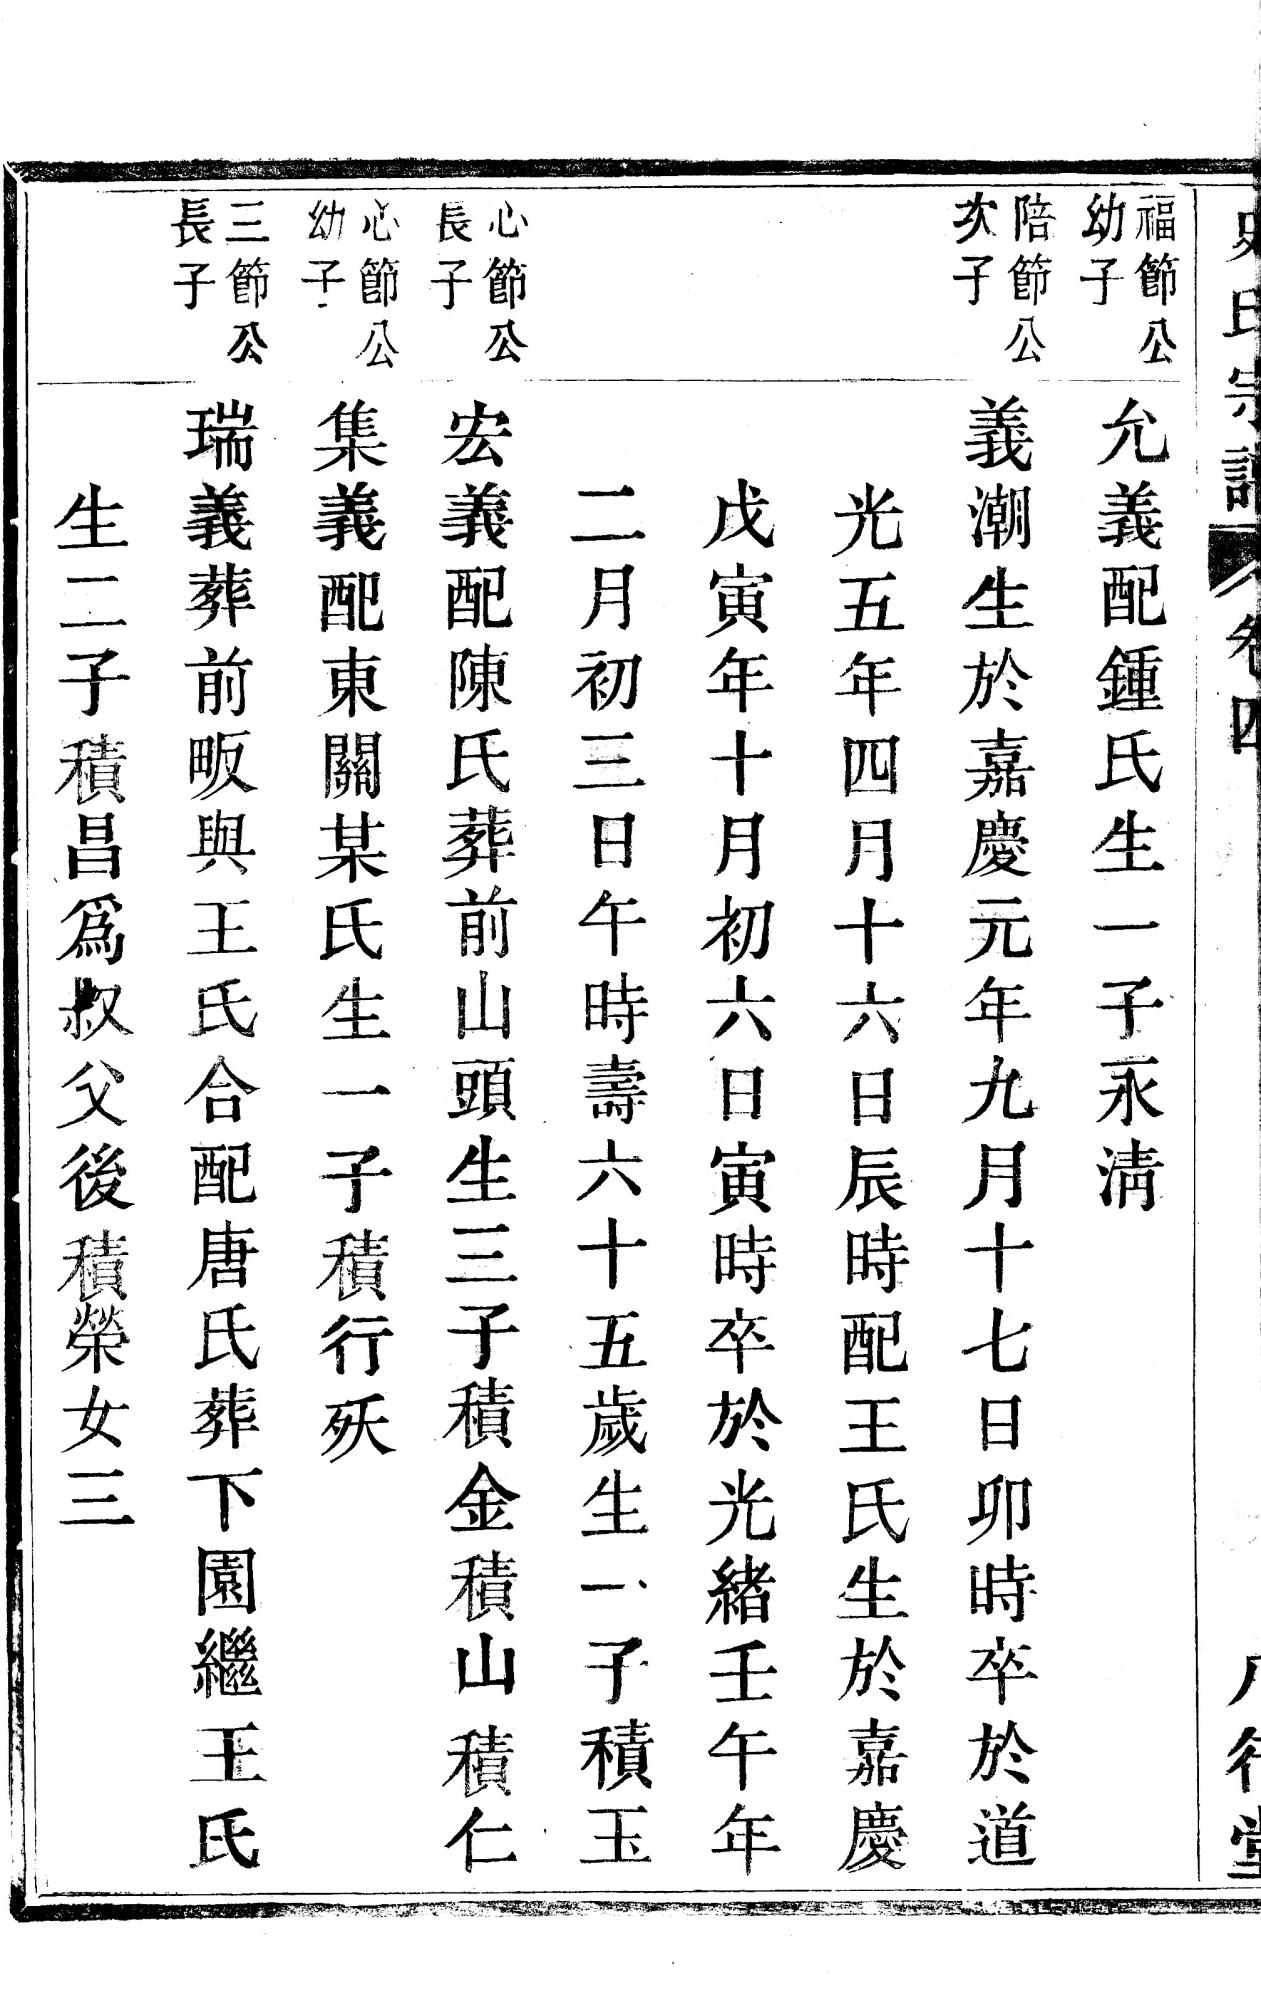 史氏宗譜 卷四
福節公
幼子
允義配鍾氏生一子永清
陪節公
次子
義潮生於嘉慶元年九月十七日卯時卒於道
光五年四月十六日辰時配王氏生於嘉慶
戊寅年十月初六日寅時卒於光緒壬午年
二月初三日午時壽六十五歲生一子積玉
心節公
長子
宏義配陳氏葬前山頭生三子積金積山積仁
心節公
幼子
集義配東關某氏生一子積行殀
三節公
長子
瑞義葬前畈與王氏合配唐氏葬下園繼王氏
生二子積昌爲叔父後積榮女三